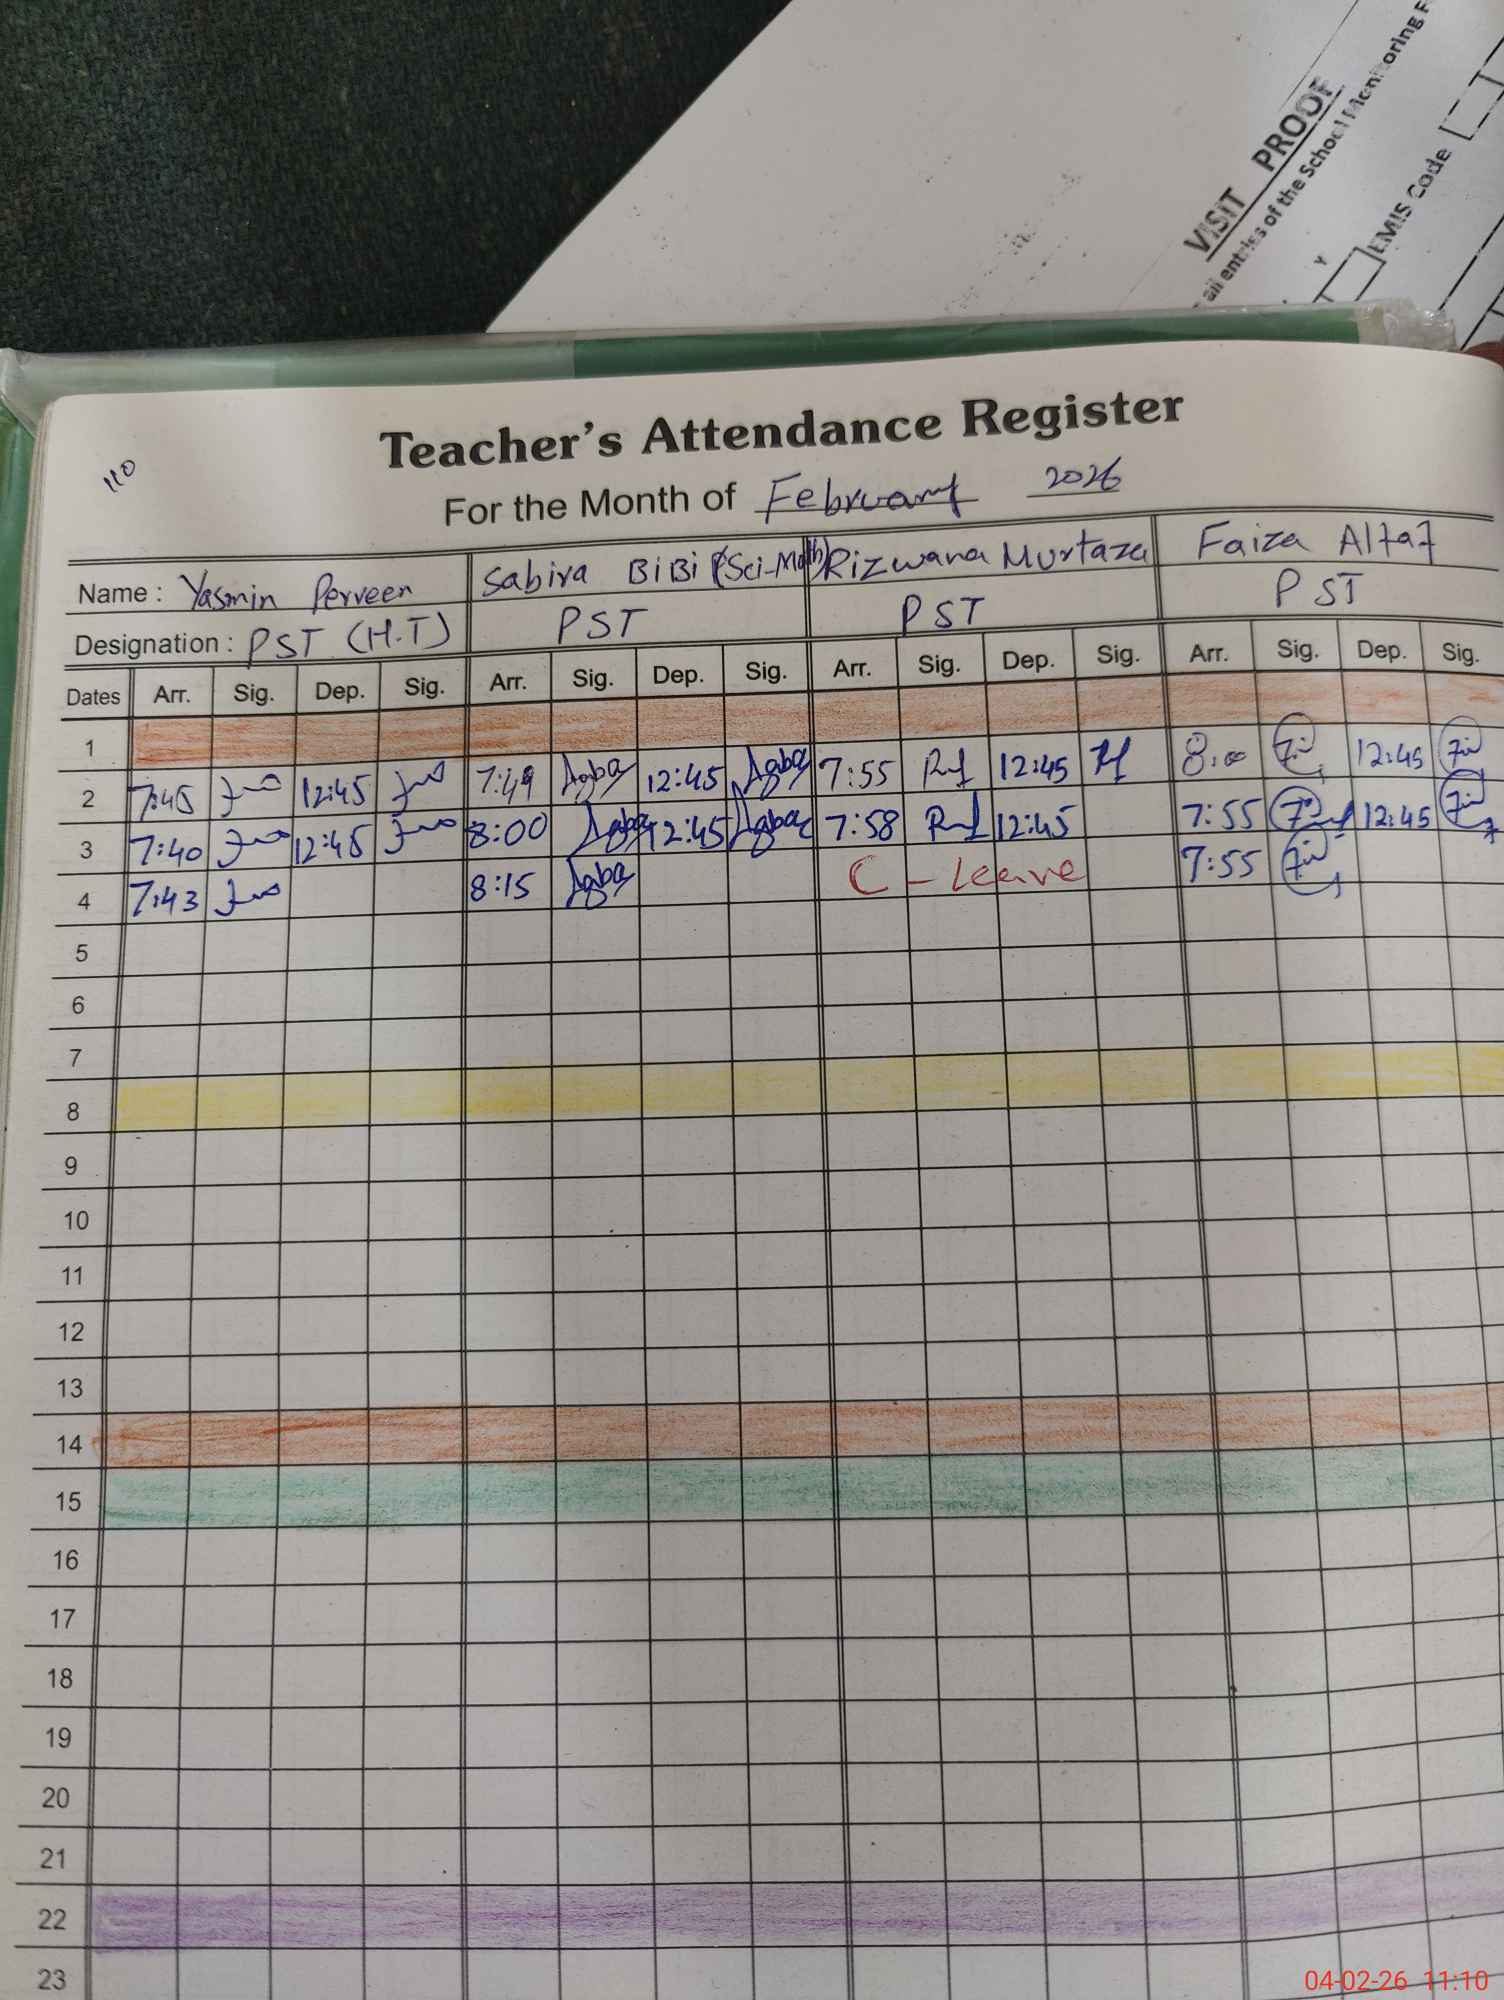 VISIT PROOF
all entries of the School Monitoring F
EMIS Code
Y
110
Teacher's Attendance Register
For the Month of February 2026
Name : Yasmin Perveen Sabira BiBi (Sci-Math) Rizwana Murtaza Faiza Altaf
Designation : PST (H.T) PST PST PST
Dates Arr. Sig. Dep. Sig. Arr. Sig. Dep. Sig. Arr. Sig. Dep. Sig. Arr. Sig. Dep. Sig.
1
2 7:45 12:45 7:49 12:45 7:55 12:45 8:00 12:45
3 7:40 12:45 8:00 12:45 7:58 12:45 7:55 12:45
4 7:43 8:15 C - Leave 7:55
5
6
7
8
9
10
11
12
13
14
15
16
17
18
19
20
21
22
23
04-02-26 11:10